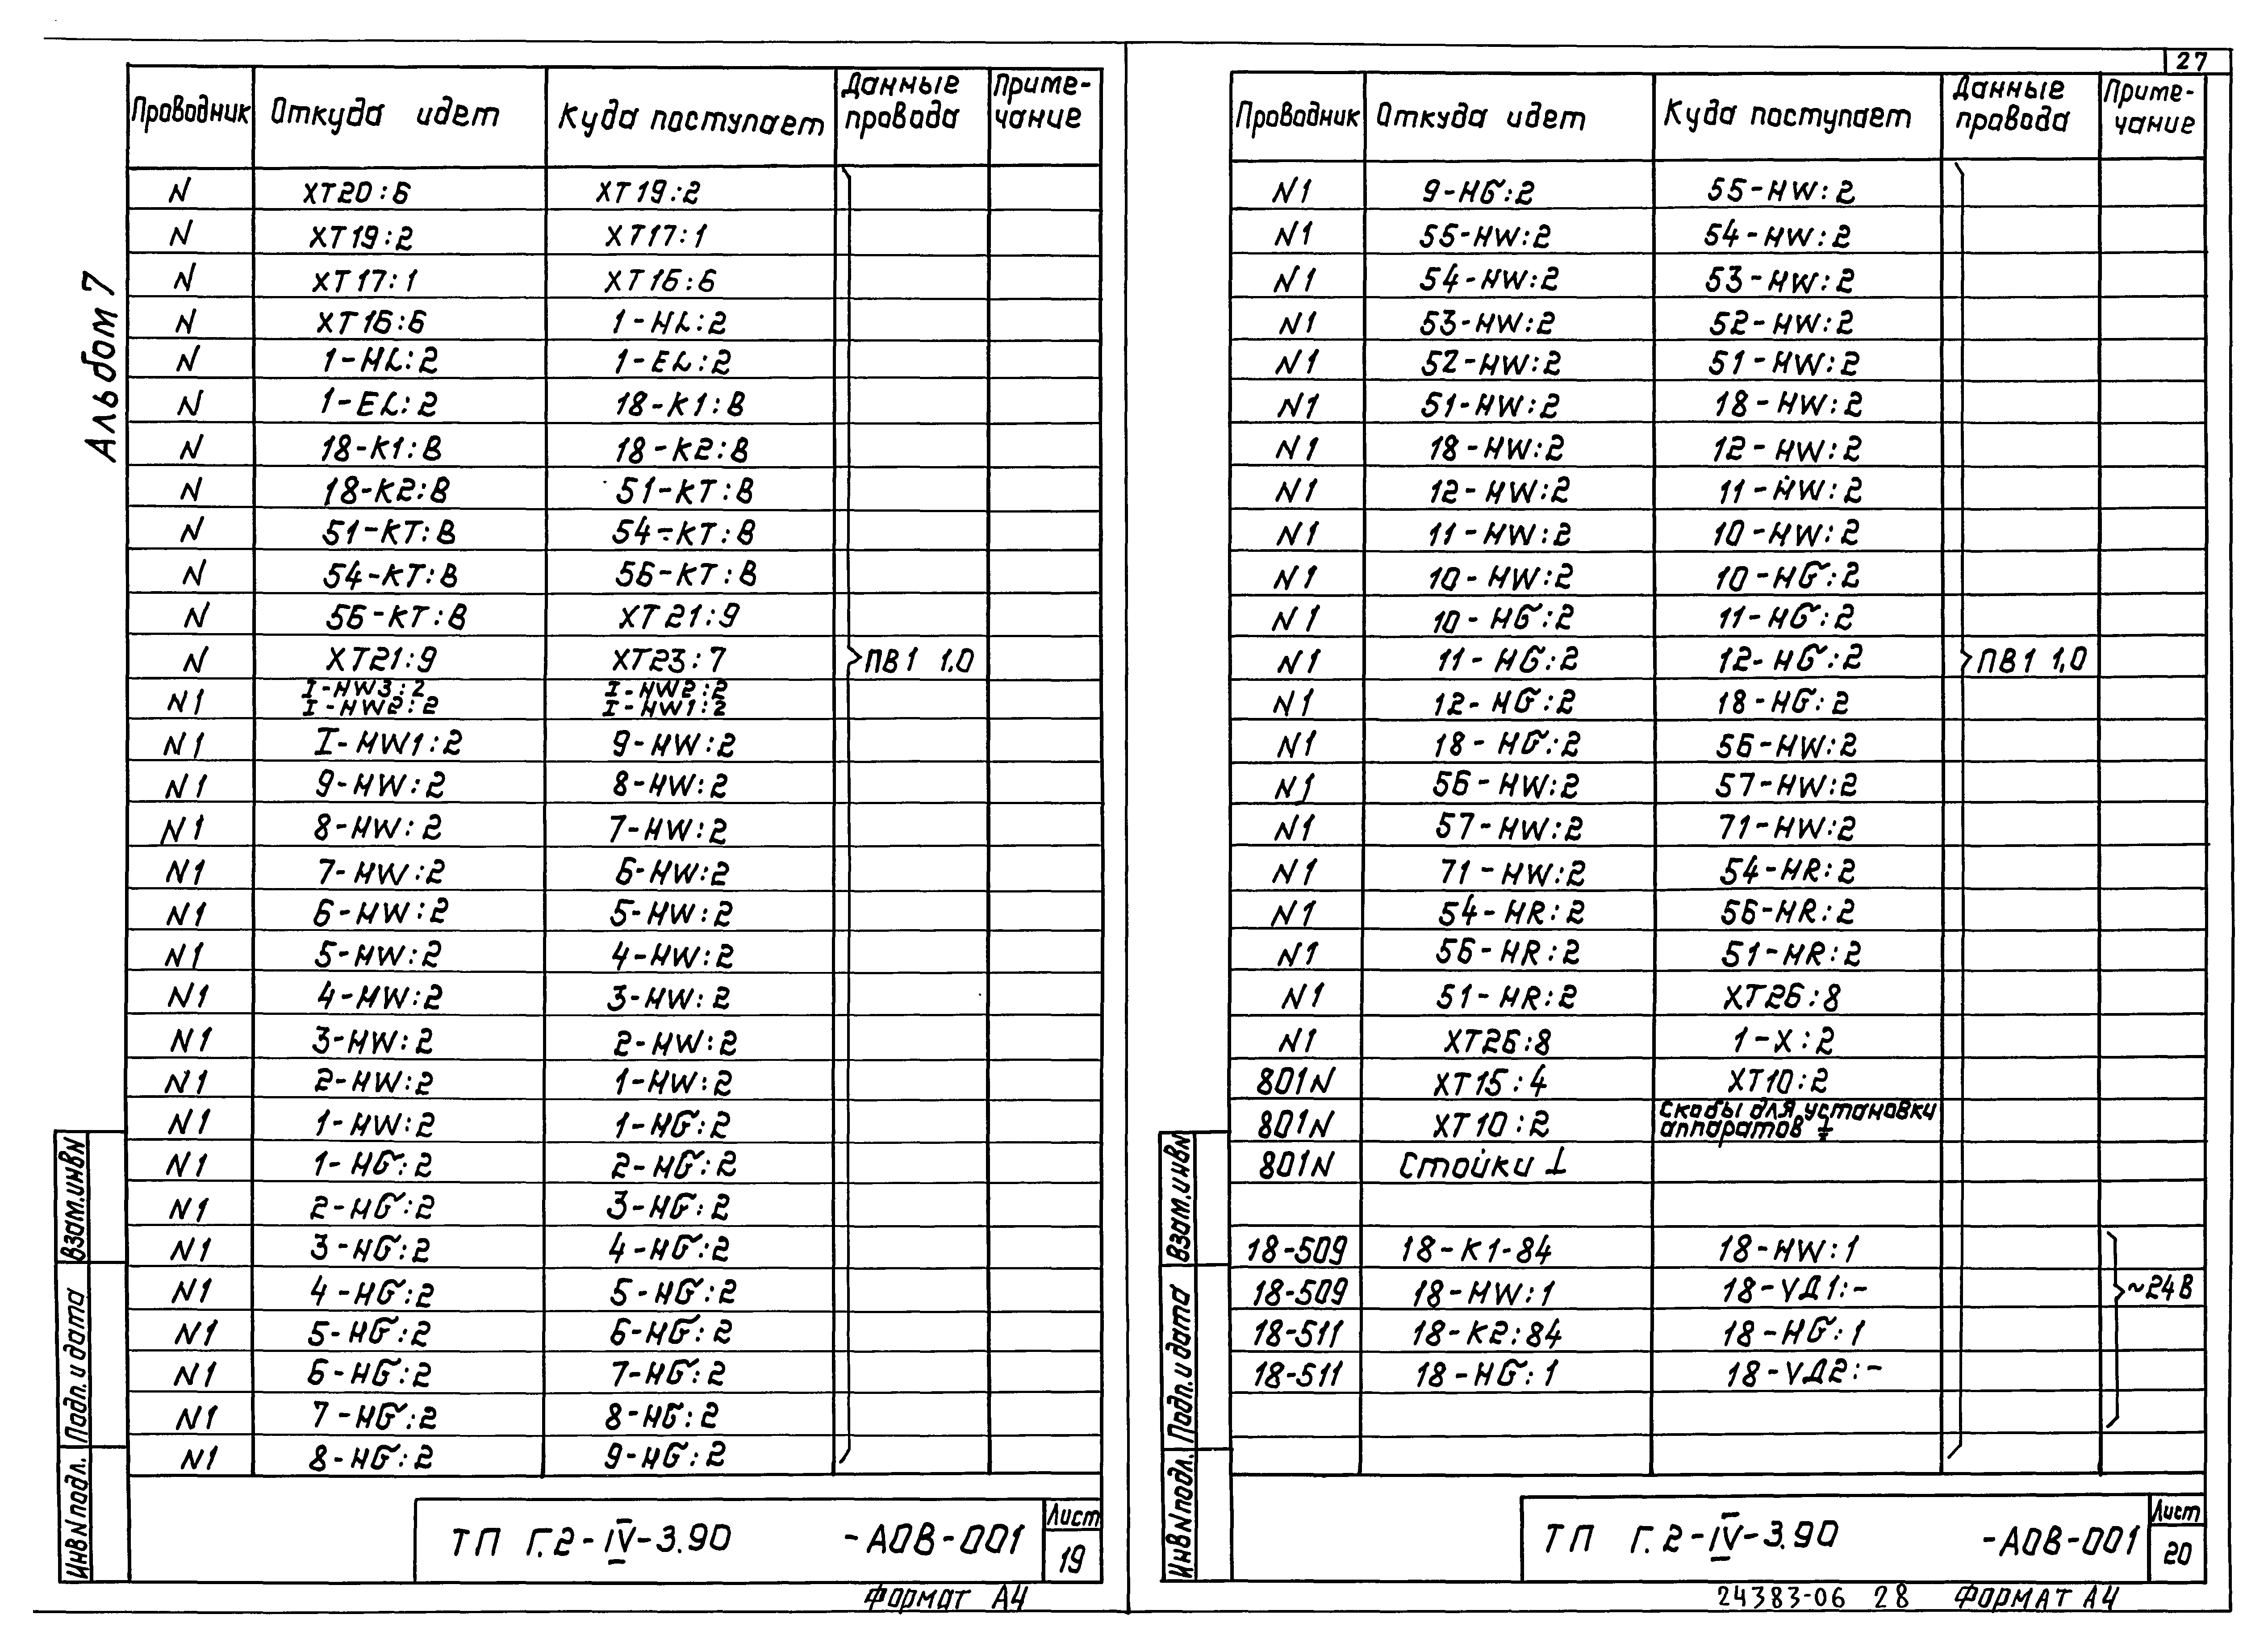 27
Альбом 7
Проводник Откуда идет Куда поступает Данные провода Примечание
N XT20:6 XT19:2
N XT19:2 XT17:1
N XT17:1 XT16:6
N XT16:6 1-HL:2
N 1-HL:2 1-EL:2
N 1-EL:2 18-K1:B
N 18-K1:B 18-K2:B
N 18-K2:B 51-KT:B
N 51-KT:B 54-KT:B
N 54-KT:B 56-KT:B
N 56-KT:B XT21:9
N XT21:9 XT23:7 ПВ1 1,0
N1 I-HW3:2 I-HW2:2
I-HW2:2 I-HW1:2
N1 I-HW1:2 9-HW:2
N1 9-HW:2 8-HW:2
N1 8-HW:2 7-HW:2
N1 7-HW:2 6-HW:2
N1 6-HW:2 5-HW:2
N1 5-HW:2 4-HW:2
N1 4-HW:2 3-HW:2
N1 3-HW:2 2-HW:2
N1 2-HW:2 1-HW:2
N1 1-HW:2 1-HG:2
N1 1-HG:2 2-HG:2
N1 2-HG:2 3-HG:2
N1 3-HG:2 4-HG:2
N1 4-HG:2 5-HG:2
N1 5-HG:2 6-HG:2
N1 6-HG:2 7-HG:2
N1 7-HG:2 8-HG:2
N1 8-HG:2 9-HG:2
Взам.инвN
Подп. и дата
ИнвNподл.
ТП Г.2-IV-3.90 -АОВ-001 Лист 19
Формат А4
Проводник Откуда идет Куда поступает Данные провода Примечание
N1 9-HG:2 55-HW:2
N1 55-HW:2 54-HW:2
N1 54-HW:2 53-HW:2
N1 53-HW:2 52-HW:2
N1 52-HW:2 51-HW:2
N1 51-HW:2 18-HW:2
N1 18-HW:2 12-HW:2
N1 12-HW:2 11-HW:2
N1 11-HW:2 10-HW:2
N1 10-HW:2 10-HG:2
N1 10-HG:2 11-HG:2
N1 11-HG:2 12-HG:2 ПВ1 1,0
N1 12-HG:2 18-HG:2
N1 18-HG:2 56-HW:2
N1 56-HW:2 57-HW:2
N1 57-HW:2 71-HW:2
N1 71-HW:2 54-HR:2
N1 54-HR:2 56-HR:2
N1 56-HR:2 51-HR:2
N1 51-HR:2 XT26:8
N1 XT26:8 1-X:2
801N XT15:4 XT10:2
801N XT10:2 Скобы для установки
аппаратов ⏚
801N Стойки ⊥
18-509 18-K1-84 18-HW:1
18-509 18-HW:1 18-VД1:- ~24В
18-511 18-K2:84 18-HG:1
18-511 18-HG:1 18-VД2:-
Взам.инвN
Подп. и дата
ИнвNподл.
ТП Г.2-IV-3.90 -АОВ-001 Лист 20
24383-06 28 Формат А4